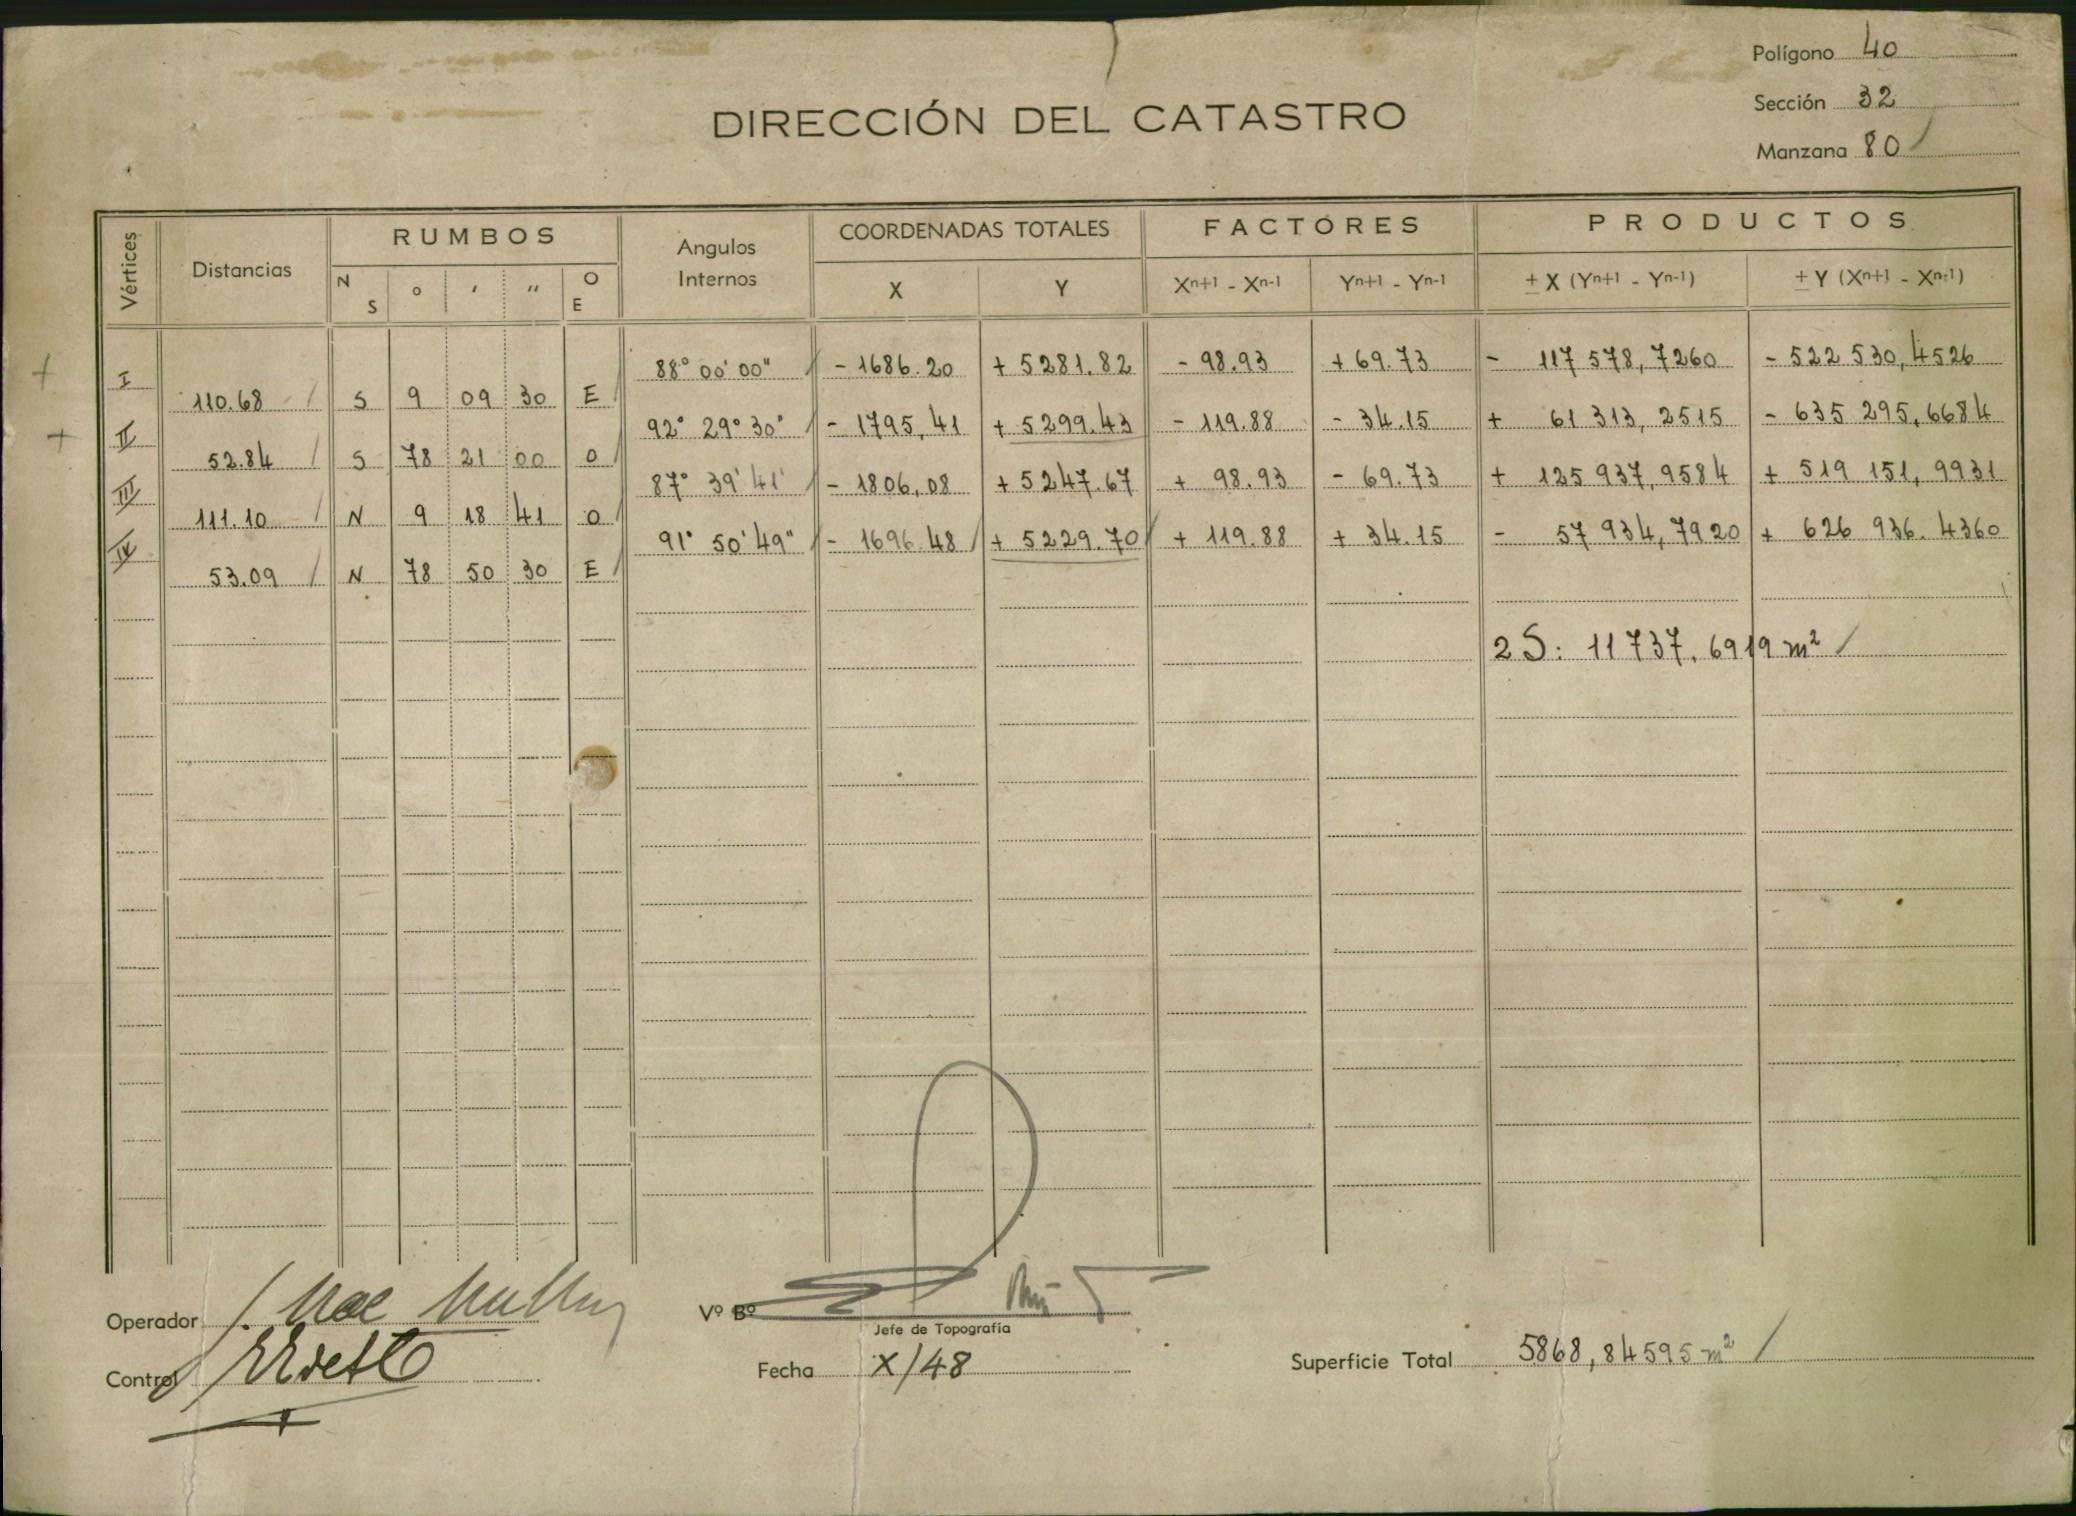 Polígono 40
Sección 32
Manzana 80
DIRECCIÓN DEL CATASTRO
Vértices Distancias RUMBOS Angulos Internos COORDENADAS TOTALES FACTORES PRODUCTOS
N S ° ′ ″ O E X Y Xn+1 - Xn-1 Yn+1 - Yn-1 ± X (Yn+1 - Yn-1) ± Y (Xn+1 - Xn-1)
I 88° 00' 00" - 1686.20 + 5281.82 - 98.93 + 69.73 - 117 578,7260 - 522 530,4526
110.68 S 9 09 30 E
II 92° 29° 30° - 1795,41 + 5299.43 - 119.88 - 34.15 + 61 313,2515 - 635 295,6684
52.84 S 78 21 00 O
III 87° 39' 41' - 1806,08 + 5247.67 + 98.93 - 69.73 + 125 937,9584 + 519 151,9931
111.10 N 9 18 41 O
IV 91° 50' 49" - 1696.48 + 5229.70 + 119.88 + 34.15 - 57 934,7920 + 626 936.4360
53.09 N 78 50 30 E
2S: 11737.6919 m²
Operador
Vº Bº
Jefe de Topografía
Control
Fecha X/48
Superficie Total 5868,84595 m²